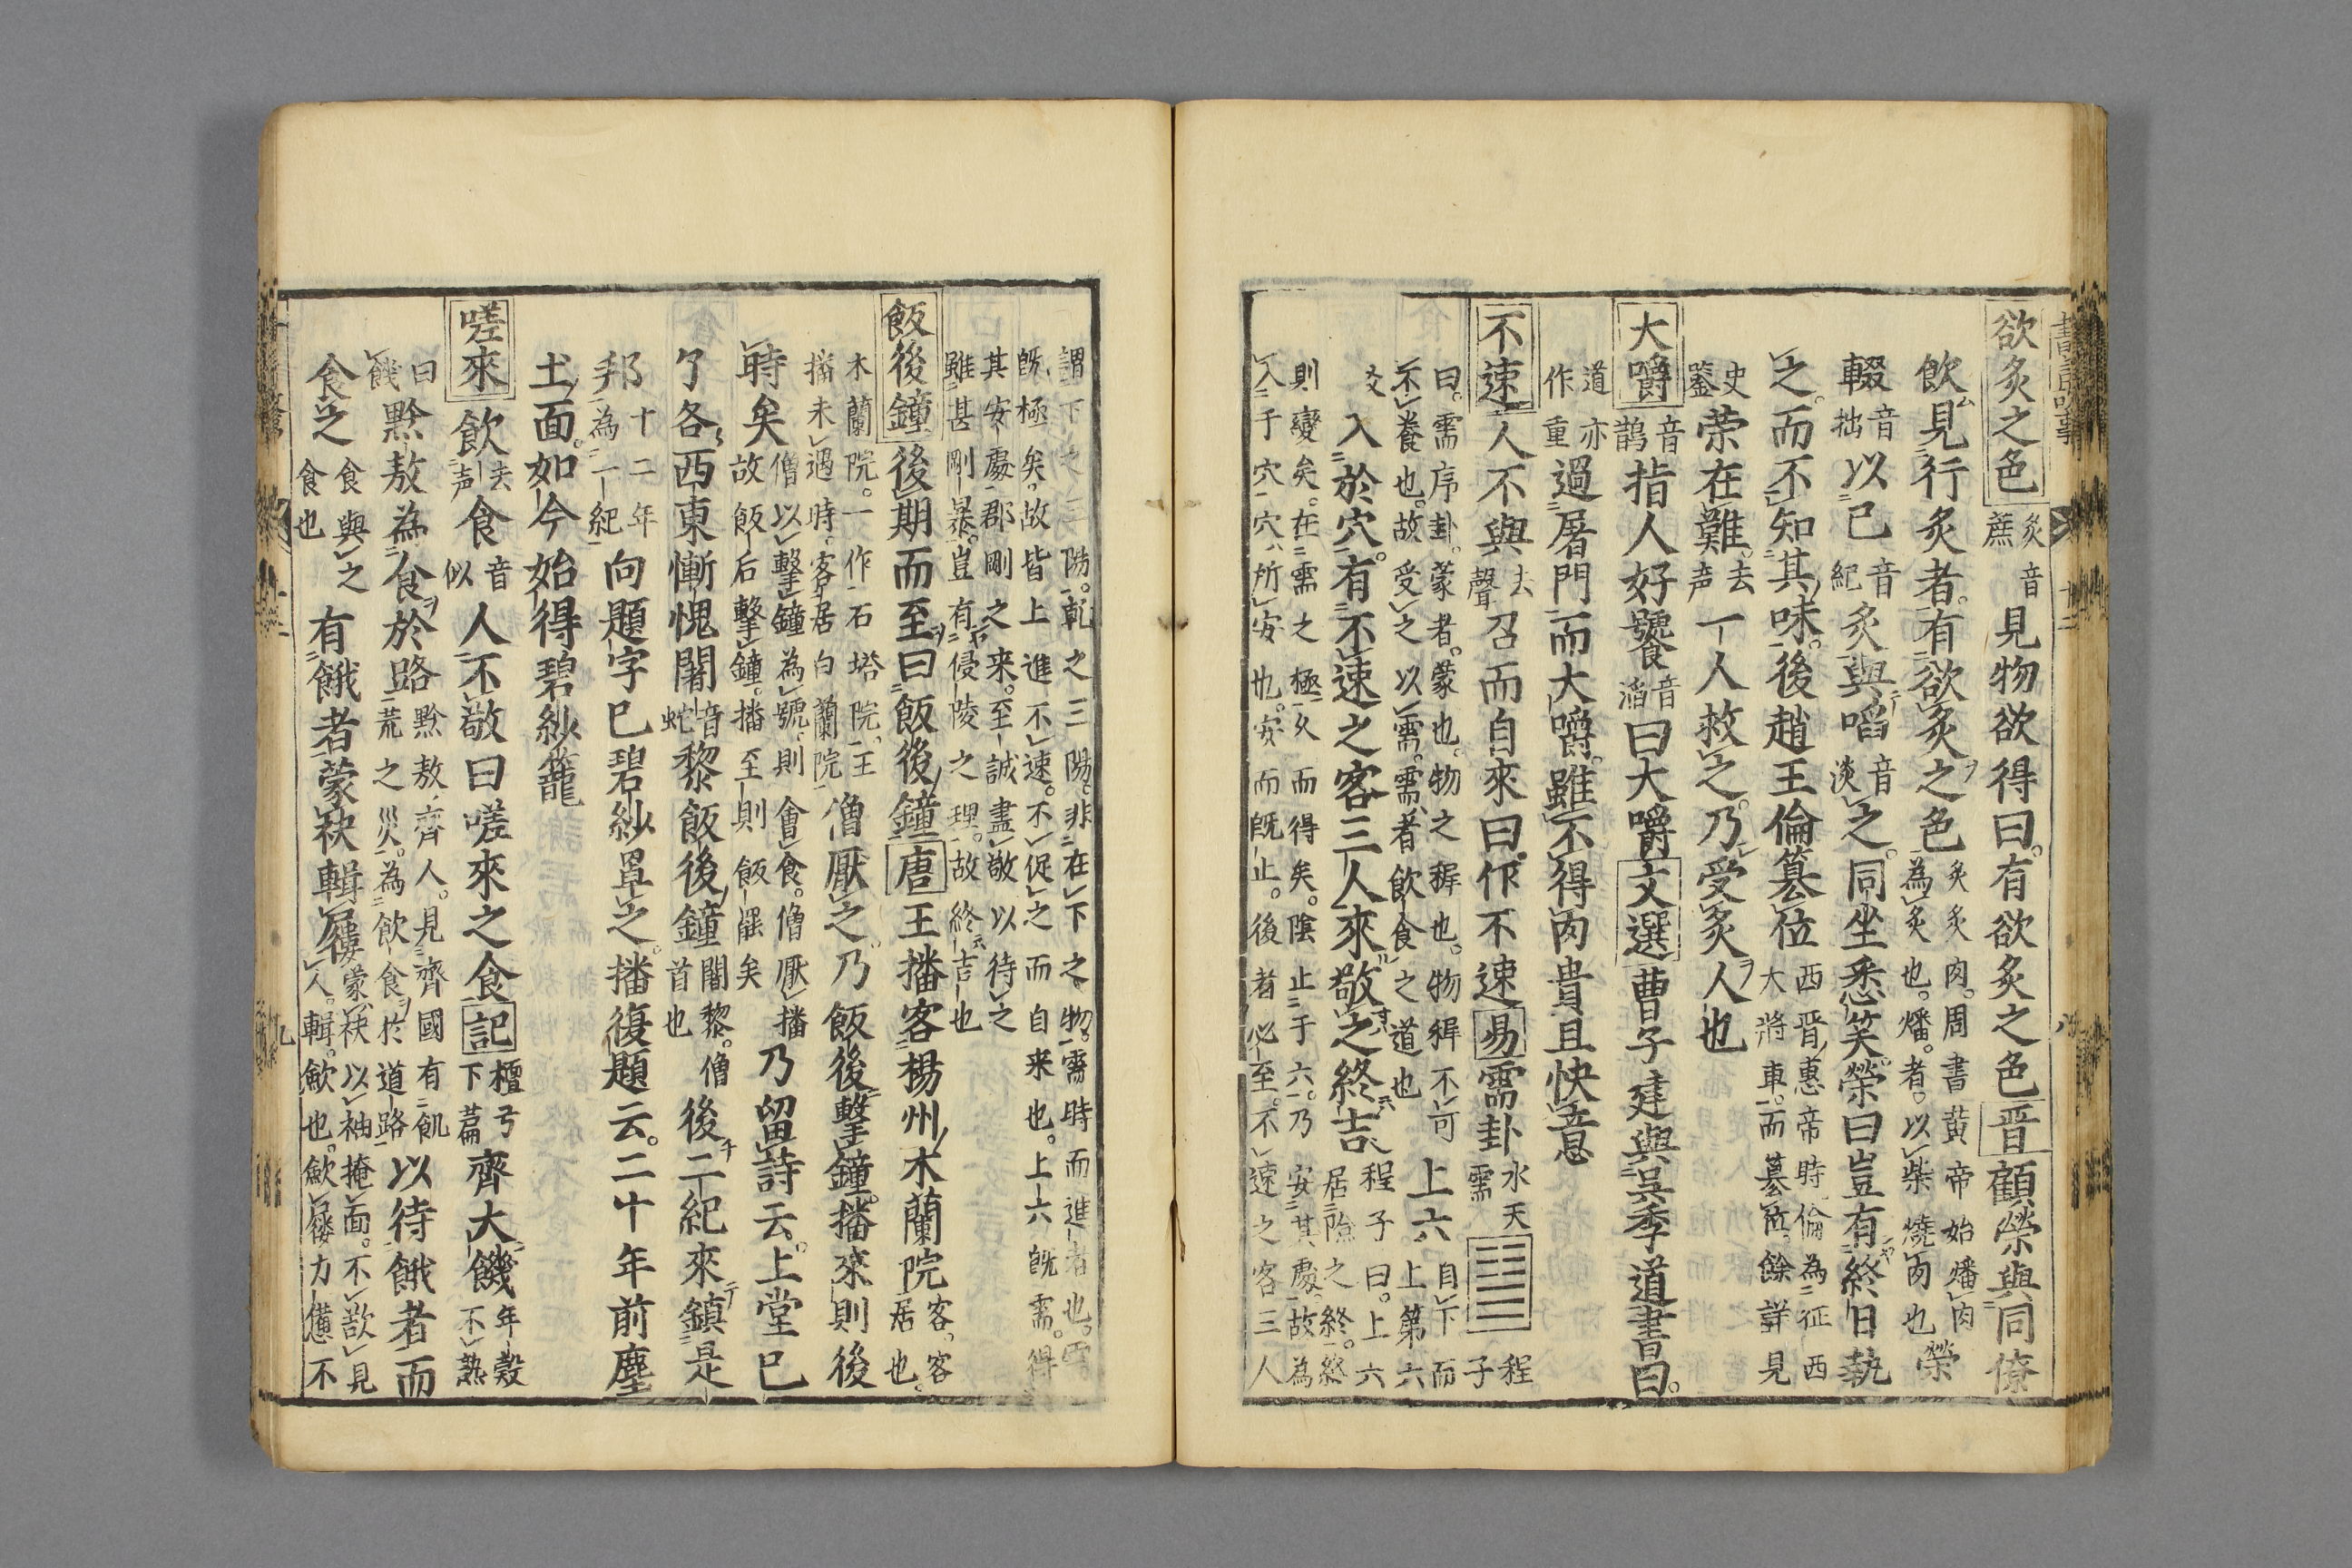 欲炙之色 炙音蔗 見物欲得曰有欲炙之色 晋 顧榮與同僚
飲見行炙者有欲炙之色 炙炙肉周書黄帝始燔肉為炙也燔者以柴燒肉也 榮
輟 音拙 以己 音紀 炙與㗖 音淡 之同坐悉笑榮曰豈有終日執
之而不知其味後趙王倫簒位 西晋惠帝時倫為征西大將車而簒位餘詳見
史鍳 荣在難 去声 一人救之乃受炙人也
大嚼 音鵲 指人好饕 音滔 曰大嚼 文選 曹子建與呉季道書曰
道亦作重 過屠門而大嚼雖不得肉貴且快意
不速 人不與 去聲 召而自來曰作不速 易 需卦 水天需 程子
曰需序卦蒙者蒙也物之穉也物穉不可不養也故受之以需需者飲食之道也 上六 自下而上第六
爻 入於穴有不速之客三人來敬之終吉 程子曰上六居險之終終
則變矣在需之極久而得矣陰止于六乃安其處故為
入于穴穴所安也安而既止後者必至不速之客三人
謂下之三陽乾之三陽非在下之物需時而進者也需
既極矣故皆上進不速不促之而自来也上六既需得
其安處郡剛之来至誠盡敬以待之
雖甚剛暴豈有侵陵之理故終吉也
飯後鐘 後期而至曰飯後鐘 唐 王播客楊州木蘭院 客客居也
木蘭院一作石塔院王播未遇時客居白蘭院 僧厭之乃飯後擊鐘播來則後
時矣 僧以擊鐘為號則會食僧厭播故飯后擊鐘播至則飯罷矣 乃留詩云上堂已
了各西東慚愧闍 音蛇 黎飯後鐘 闍黎僧首也 後二紀來鎮是
邦 十二年為一紀 向題字已碧紗罩之播復題云二十年前塵
土面如今始得碧紗籠
嗟來 飲 去声 食 音似 人不敬曰嗟來之食 記 檀弓下篇 齊大饑 年穀不熟
曰饑 黔敖為食於路 黔敖齊人見齊國有飢荒之災為飲食於道路 以待餓者而
食之 食與之食食也 有餓者蒙袂輯屨 蒙袂以袖掩面不欲見人輯歛也歛屨力憊不